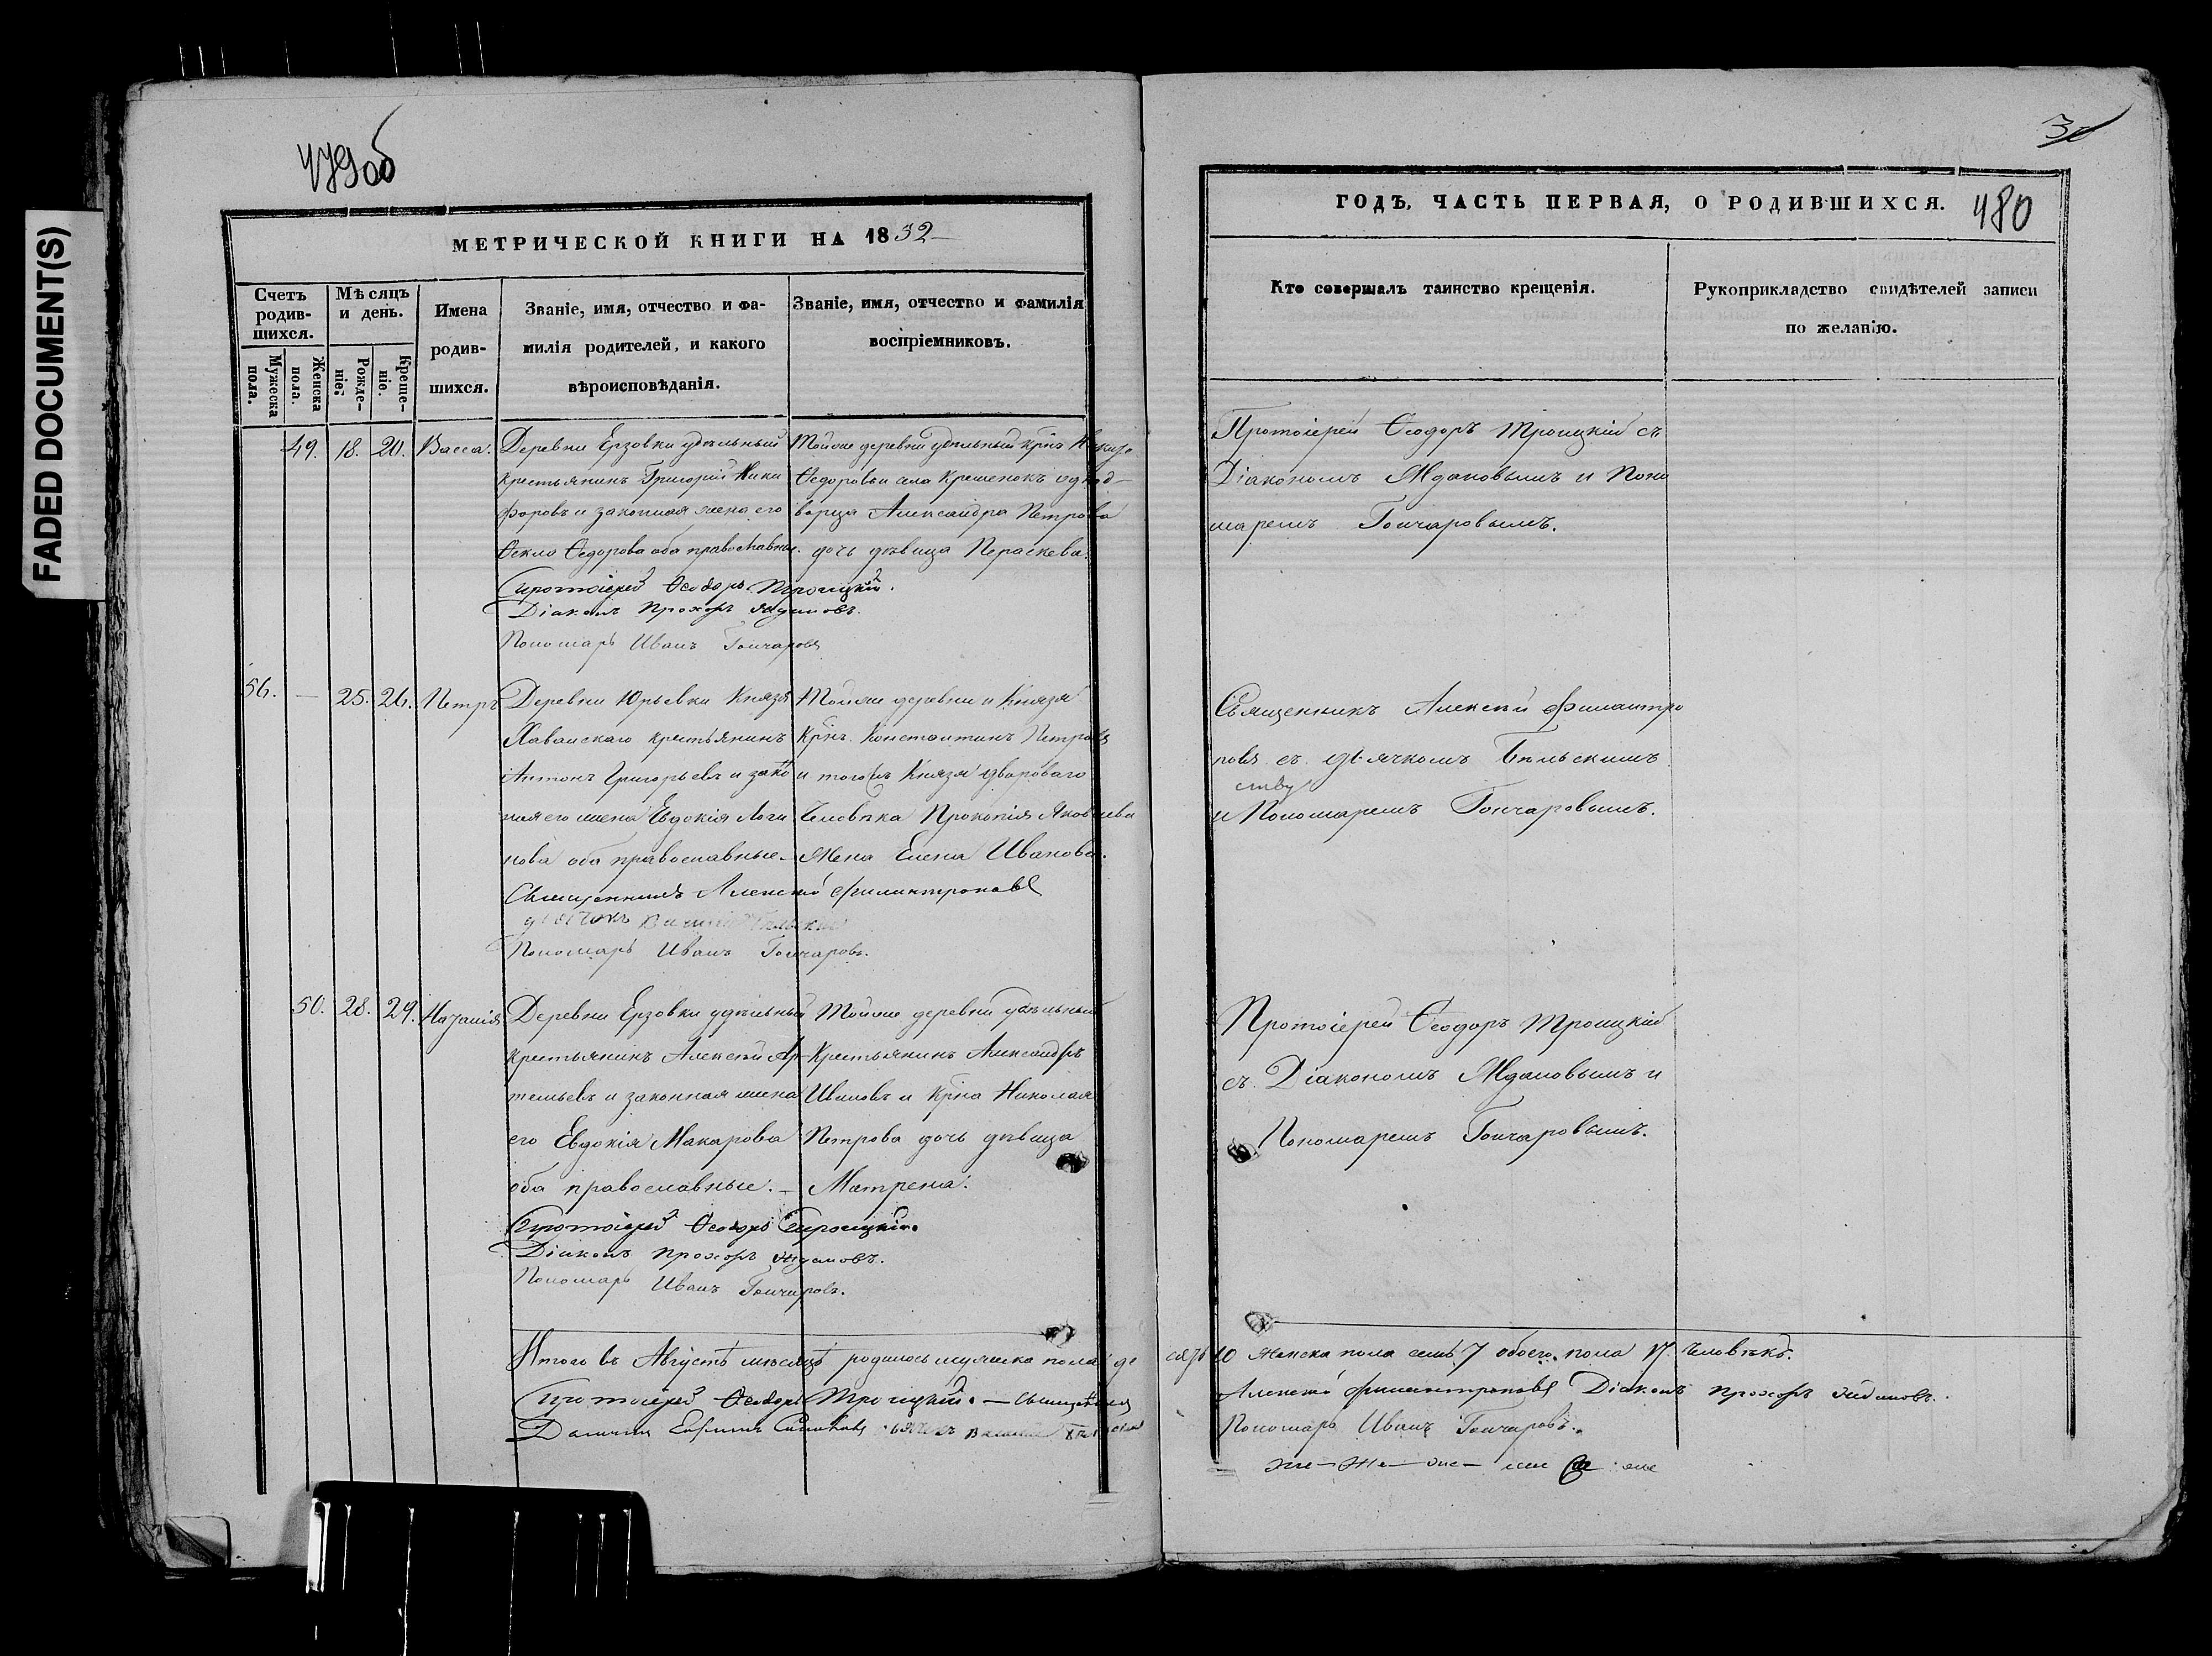 FADED DOCUMENT(S)
479об
МЕТРИЧЕСКОЙ КНИГИ НА 1852
Счетъ родившихся.
Мѣсяцъ и день.
Имена родившихся.
Званіе, имя, отчество и фамилія родителей, и какого вѣроисповѣданія.
Званіе, имя, отчество и фамилія воспріемниковъ.
Мужеска пола.
Женска пола.
Рожденіе.
Крещеніе.
49. 18. 20. Васса.
Деревни Ерзовки удѣльный
крестьянинъ Григорій Ники
форовъ и законная жена его
Ѳекла Ѳедорова оба православные.
Тойже деревни удѣльный крнъ
Ѳедоровъ и села Крешенокъ однод-
ворца Александра Петрова
дочь дѣвица Параскева.
Протоіерей Ѳеодоръ Троицкій.
Діаконъ Прохоръ Ждановъ.
Пономарь Иванъ Гончаровъ
56. — 25. 26. Петръ
Деревни Юрьевки Князя
крестьянинъ
Антонъ Григорьевъ и зако
ная его жена Евдокія Логи
нова оба православные.
Тойже деревни и Князя
Крнъ. Константинъ Петровъ
и тогожъ Князя двороваго
Человѣка Прокопія Яковлева
Жена Елена Иванова.
Священникъ Алексѣй Филантроповъ
дьячокъ Василій Бѣльскій
Пономарь Иванъ Гончаровъ.
50. 28. 29. Наталія
Деревни Ерзовки удѣльный
крестьянинъ Алексѣй Ар-
темьевъ и законная жена
его Евдокія Макарова
оба православные. —
Тойже деревни удѣльный
Крестьянинъ Александръ
Ивановъ и Крнa Николая
Петрова дочь дѣвица
Матрена.
Протоіерей Ѳеодоръ Троицкій.
Діаконъ Прохоръ Ждановъ.
Пономарь Иванъ Гончаровъ.
Итого въ Августѣ мѣсяцѣ родилось мужеска пола де
Протоіерей Ѳеодоръ Троицкій. — Священникъ
Дьячокъ Василій Бѣльскій
480
ГОДЪ, ЧАСТЬ ПЕРВАЯ, О РОДИВШИХСЯ.
Кто совершалъ таинство крещенія.
Рукоприкладство свидѣтелей записи по желанію.
Протоіерей Ѳеодоръ Троицкій съ
Діакономъ Ждановымъ и Поно
маремъ Гончаровымъ.
Священникъ Алексѣй Филантро
повъ съ дьячкомъ Бѣльскимъ
и Пономаремъ Гончаровымъ.
Протоіерей Ѳеодоръ Троицкій
съ Діакономъ Ждановымъ и
Пономаремъ Гончаровымъ.
сять 10 женска пола семь 7 обоего пола 17. Человѣкъ.
Алексѣй Филантроповъ Діаконъ Прохоръ Ждановъ.
Пономарь Иванъ Гончаровъ.